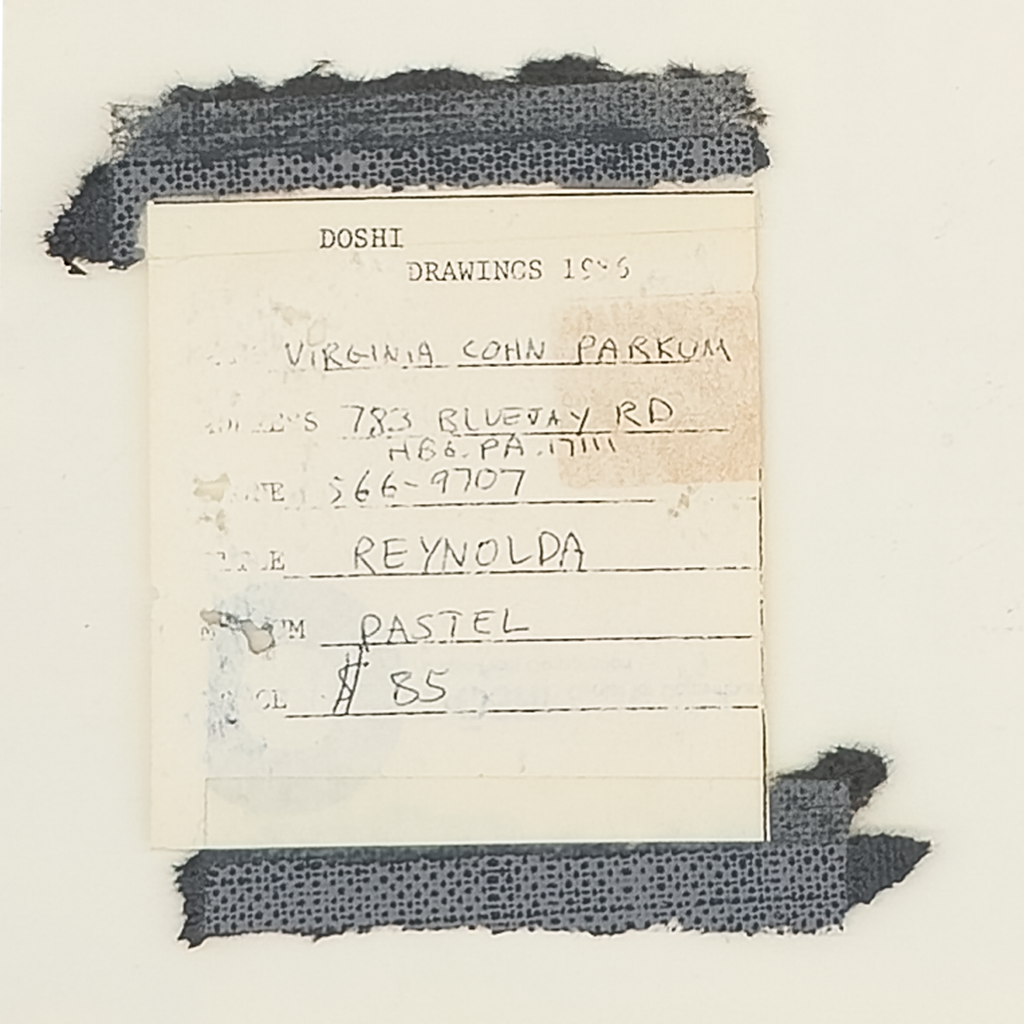 DOSHI
DRAWINGS
VIRGINIA COHN PARKUM
783 BLUEJAY RD
HBG. PA. 17111
566-9707
TITLE REYNOLDA
MEDIUM PASTEL
PRICE $ 85